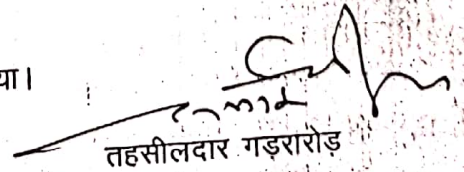 या।
तहसीलदार गड़रारोड़